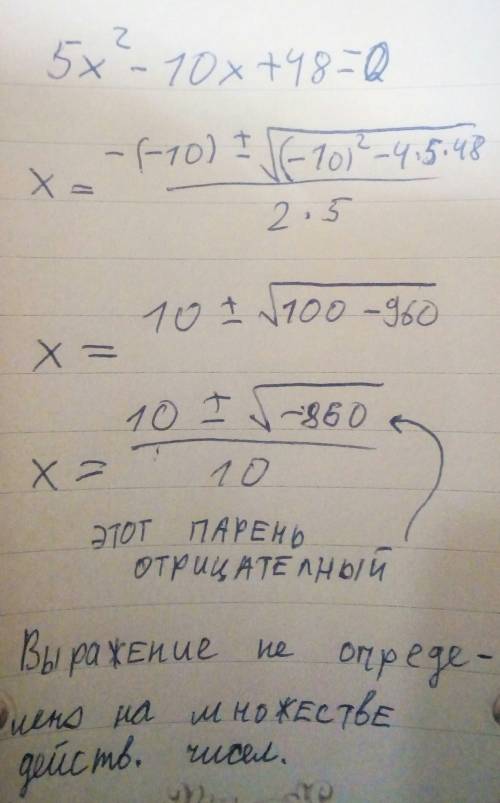 5x² - 10x + 48 = 0
x = (-(-10) ± √((-10)² - 4·5·48)) / (2·5)
x = 10 ± √(100 - 960)
x = (10 ± √(-860)) / 10
ЭТОТ ПАРЕНЬ
ОТРИЦАТЕЛНЫЙ
Выражение не опреде-
лено на множестве
действ. чисел.